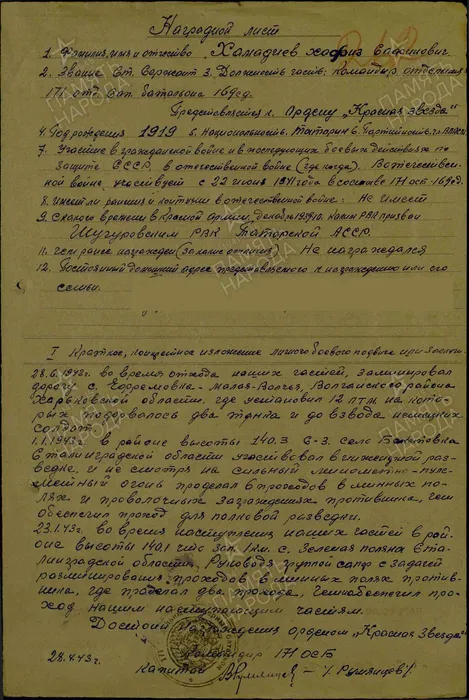 Наградной лист
1. Фамилия, имя и отчество Хамадиев Хафиз Садинович
2. Звание Ст. Сержант 3. Должность часть: командир отделения
171 отд. сап. батальона 169 сд.
Представляется к Ордену „Красная Звезда"
4. Год рождения 1919 5. Национальность Татарин 6. Партийность чл. ВЛКСМ
7. Участие в гражданской войне и в последующих боевых действиях по
защите СССР в отечественной войне (где когда). В отечествен-
ной войне участвует с 22 июня 1941 года в составе 171 осб - 169 сд.
8. Имеет ли ранения и контузии в отечественной войне: Не имеет
9. С какого времени в Красной армии, декабрь 1939 10. Каким РВК призван
Шугуровским РВК Татарской АССР.
11. Чем ранее награжден (за какие отличия) Не награждался
12. Постоянный домашний адрес представляемого к награждению или его
семьи.
I Краткое, конкретное изложение личного боевого подвига или заслуг
28.6.1942г. во время отхода наших частей, заминировал
дорогу с. Ефремовка - Малая-Волчья, Волчанского района
Харьковской области, где установил 12 птм на кото-
рых подорвалось два танка и до взвода немецких
солдат.
1.1.1943г. в районе высоты 140.3 с-з. село Бабуровка
Сталинградской области участвовал в инженерной раз-
ведке, и не смотря на сильный минометно-пуле-
метный огонь проделал 2 проходов в минных по-
лях и проволочных заграждениях противника, чем
обеспечил проход для полковой разведки.
23.1.43г. во время наступления наших частей в рай-
оне высоты 140.1 что зап. 1 км. с. Зеленая поляна Ста-
линградской области, Руководя группой сапер с задачей
разминирования проходов в минных полях против-
ника, где проделал два прохода, чем обеспечил про-
ход нашим наступающим частям.
Достоин награждения орденом „Красная Звезда"
28.4.43г. Командир 171 ОСБ
Капитан /Румянцев/
ПАМЯТЬ
НАРОДА